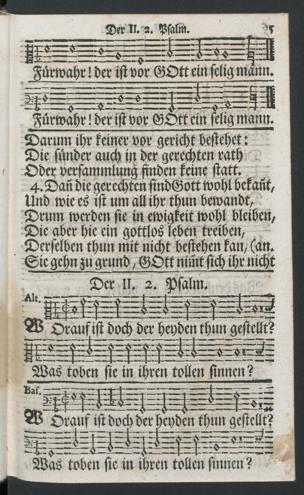 Der II. 2. Psalm. 5
Fürwahr! der ist vor GOtt ein selig mann.
Fürwahr! der ist vor GOtt ein selig mann.
Darum ihr keiner vor gericht bestehet:
Die sünder auch in der gerechten rath
Oder versammlung finden keine statt.
4. Dañ die gerechten sind Gott wohl bekañt,
Und wie es ist um all ihr thun bewandt,
Drum werden sie in ewigkeit wohl bleiben,
Die aber hie ein gottlos leben treiben,
Derselben thun mit nicht bestehen kan, (an.
Sie gehn zu grund, GOtt nim̃t sich ihr nicht
Der II. 2. Psalm.
Alt.
WOrauf ist doch der heyden thun gestellt?
Was toben sie in ihren tollen sinnen?
Bas.
WOrauf ist doch der heyden thun gestellt?
Was toben sie in ihren tollen sinnen?